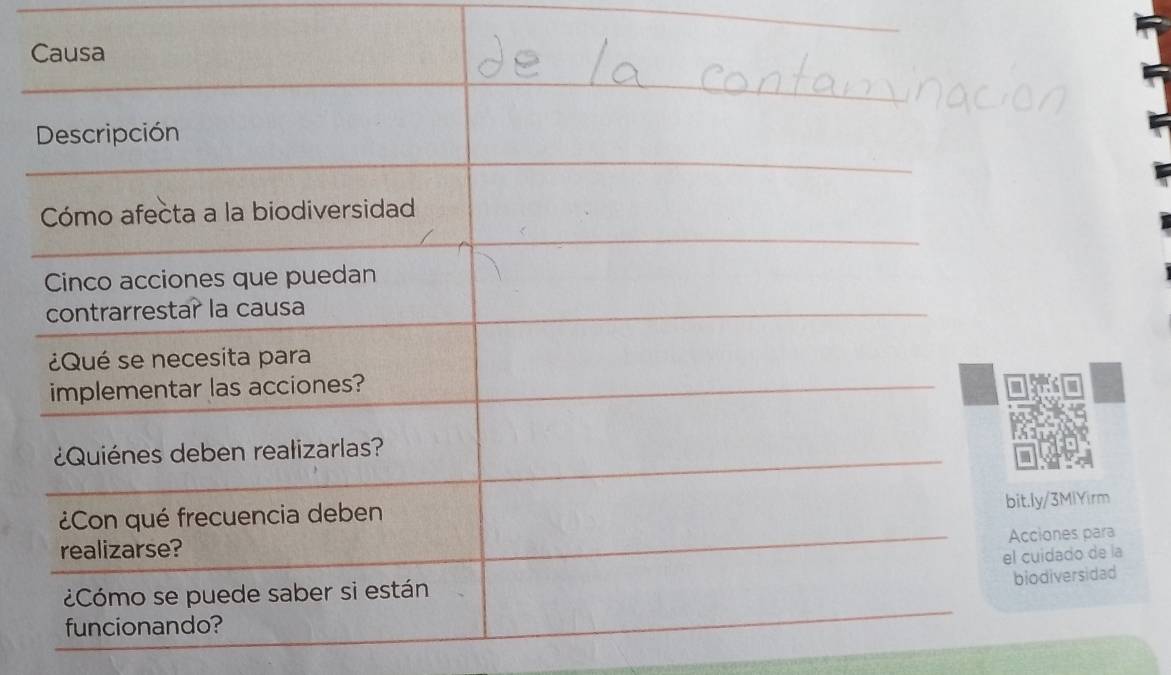 Causa
de la contaminacion
Descripción
Cómo afecta a la biodiversidad
Cinco acciones que puedan
contrarrestar la causa
¿Qué se necesita para
implementar las acciones?
¿Quiénes deben realizarlas?
¿Con qué frecuencia deben
realizarse?
¿Cómo se puede saber si están
funcionando?
bit.ly/3MIYirm
Acciones para
el cuidado de la
biodiversidad